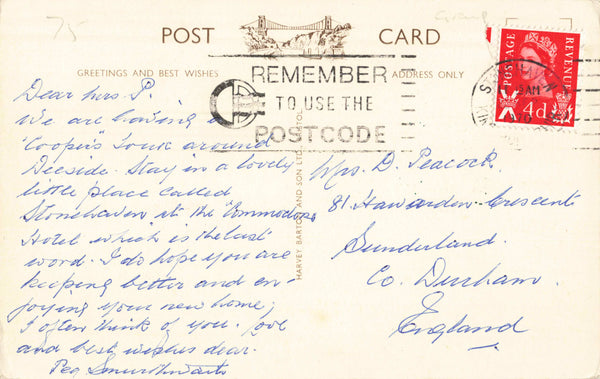 75
POST CARD
GREETINGS AND BEST WISHES
ADDRESS ONLY
REMEMBER
TO USE THE
POSTCODE
POSTAGE
REVENUE
4d
AM
70
HARVEY BARTON AND SON LTD. BRISTOL
Dear Mrs P.
We are having a
"Cooper's" Tour around
Deeside. Stay in a lovely
little place called
Stonehaven at the "Commodore
Hotel which is the last
word. I do hope you are
keeping better and en-
joying your new home,
I often think of you. Love
and best wishes dear.
Peg Smurthwaite
Mrs. D. Peacock.
81 Hawarden Crescent
Sunderland.
Co. Durham.
England